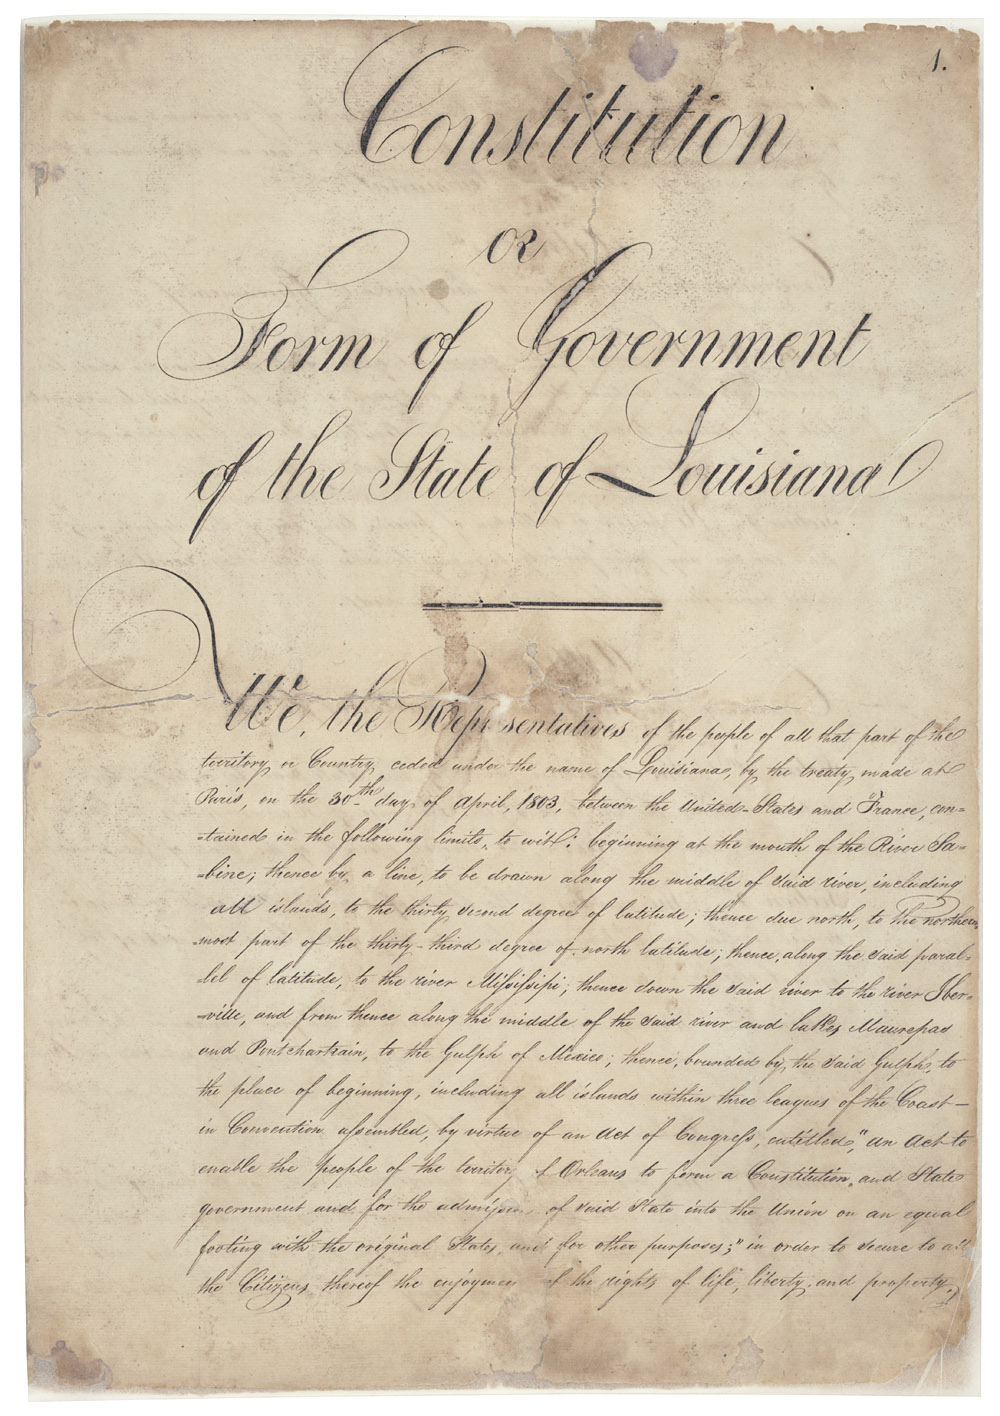 1.
Constitution
or
Form of Government
of the State of Louisiana
We, the Representatives of the people of all that part of the
territory or Country ceded under the name of Louisiana, by the treaty made at
Paris, on the 30th day of April, 1803, between the United-States and France, con=
=tained in the following limits, to wit: beginning at the mouth of the River Sa=
=bine; thence by a line, to be drawn along the middle of said river, including
all islands, to the thirty second degree of latitude; thence due north, to the northern
most part of the thirty-third degree of north latitude; thence, along the said paral=
lel of latitude, to the river Missisippi; thence down the said river to the river Iber=
=ville, and from thence along the middle of the said river and lakes Maurepas
and Pontchartrain, to the Gulph of Mexico; thence, bounded by, the said Gulph, to
the place of beginning, including all islands within three leagues of the Coast—
in Convention assembled, by virtue of an act of Congress, entitled, "an Act to
enable the people of the territory of Orleans to form a Constitution and State
government and for the admission of said State into the Union on an equal
footing with the original States, and for other purposes;" in order to secure to all
the Citizens thereof the enjoyment of the rights of life, liberty and property,